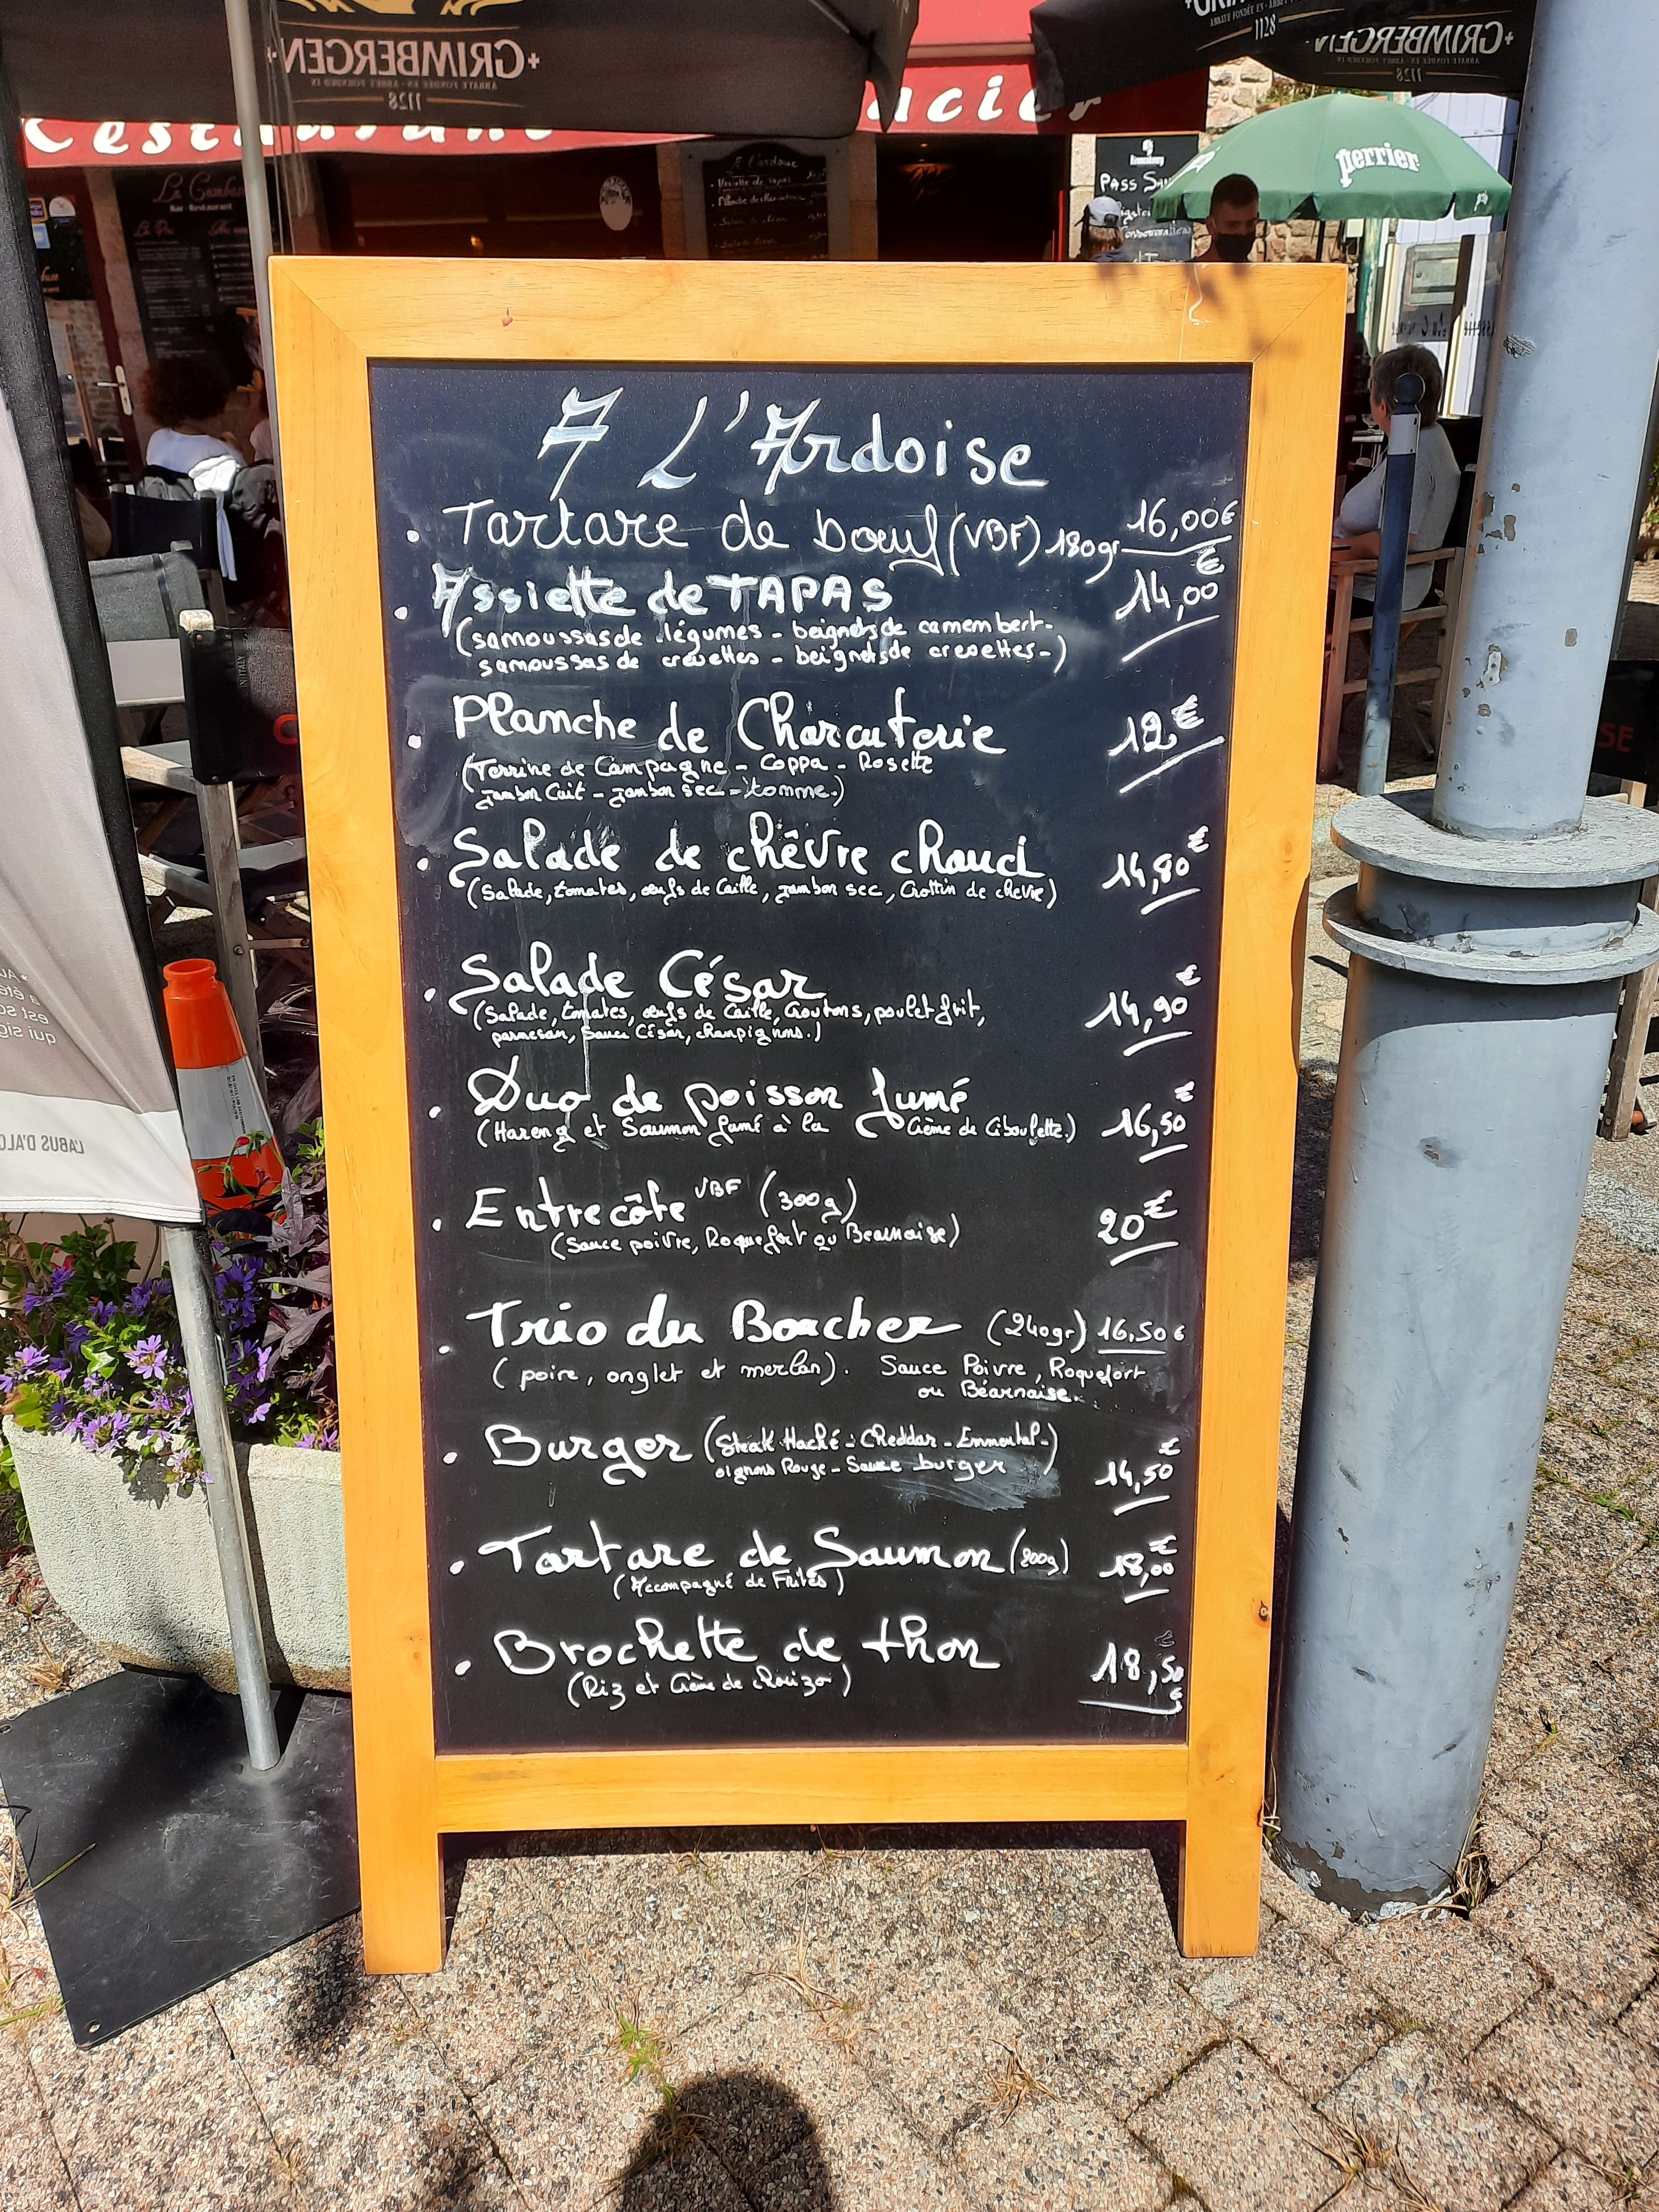 GRIMBERGEN
ABBAYE FONDÉE EN - ABBEY FOUNDED IN
1128
GRIMBERGEN
ABBAYE FONDÉE EN - ABBEY FOUNDED IN
1128
1128
Restaurant
acier
perrier
PASS
La
Bar-Restaurant
A l'ardoise
A L'Ardoise
• Tartare de bœuf (VBF) 180gr 16,00€
• Assiette de TAPAS 14,00€
(samoussas de légumes - beignets de camembert -
samoussas de crevettes - beignets de crevettes -)
• Planche de Charcuterie 12€
(Terrine de Campagne - Coppa - Rosette
jambon Cuit - jambon Sec - tomme.)
• Salade de chêvre chaud 14,80€
(Salade, tomates, œufs de Caille, jambon sec, Crottin de chèvre)
• Salade César 14,90€
(Salade, tomates, œufs de Caille, Croutons, poulet frit,
parmesan, sauce César, champignons.)
• Duo de poisson fumé 16,50€
(Hareng et Saumon fumé à la Crème de Ciboulette.)
• Entrecôte VBF (300g) 20€
(Sauce poivre, Roquefort ou Bearnaise)
• Trio du Boucher (240gr) 16,50€
(poire, onglet et merlan). Sauce Poivre, Roquefort
ou Béarnaise.
• Burger (Steak Haché - Cheddar - Emmental - 14,50€
oignons Rouge - Sauce burger)
• Tartare de Saumon (200g) 18,00€
(Accompagné de Frites)
• Brochette de thon 18,50€
(Riz et Crème de chorizo)
L'ABUS D'ALC